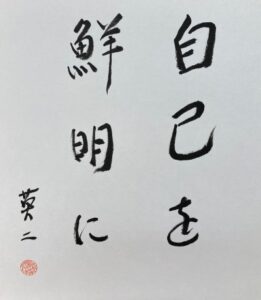 自己を
鮮明に
英二